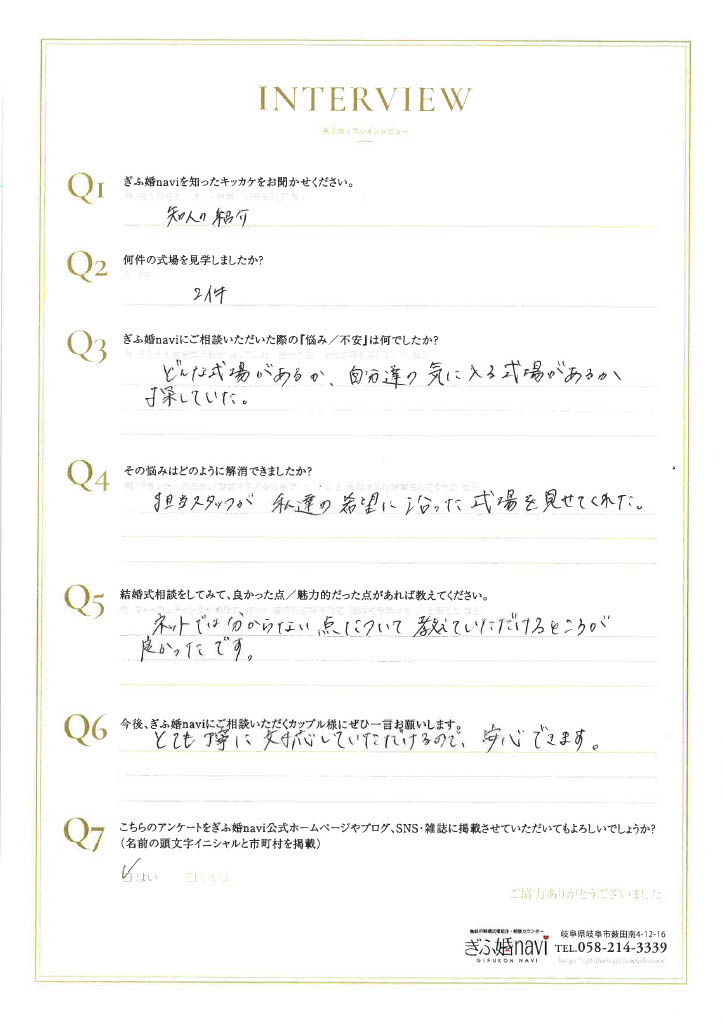 INTERVIEW
先輩カップルインタビュー
Q1 ぎふ婚naviを知ったキッカケをお聞かせください。
知人の紹介
Q2 何件の式場を見学しましたか?
2件
Q3 ぎふ婚naviにご相談いただいた際の『悩み/不安』は何でしたか?
どんな式場があるか、自分達の気に入る式場があるか
探していた。
Q4 その悩みはどのように解消できましたか?
担当スタッフが 私達の希望に沿った式場を見せてくれた。
Q5 結婚式相談をしてみて、良かった点/魅力的だった点があれば教えてください。
ネットでは分からない点について教えていただけるところが
良かったです。
Q6 今後、ぎふ婚naviにご相談いただくカップル様にぜひ一言お願いします。
とても丁寧に対応していただけるので、安心できます。
Q7 こちらのアンケートをぎふ婚navi公式ホームページやブログ、SNS・雑誌に掲載させていただいてもよろしいでしょうか?
(名前の頭文字イニシャルと市町村を掲載)
はい いいえ
ご協力ありがとうございました
ぎふ婚navi 岐阜県岐阜市薮田南4-12-16
GIFUKON NAVI TEL.058-214-3339